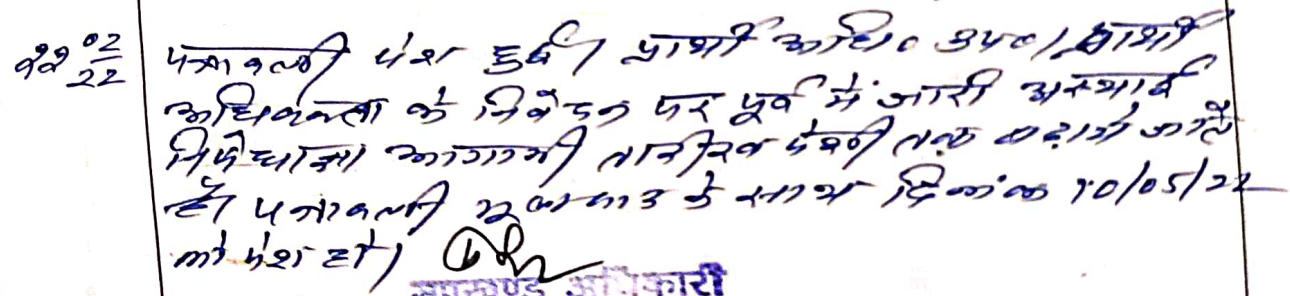 22 02/22 पत्रावली पेश हुई। प्रार्थी अधि० उप०। प्रार्थी
अधिवक्ता के निवेदन पर पूर्व में जारी अस्थाई
निषेधाज्ञा आगामी तारीख पेशी तक बढ़ाये जाते
है। पत्रावली मूलवाद के साथ दिनांक 10/05/22
को पेश हो।
उपखण्ड अधिकारी